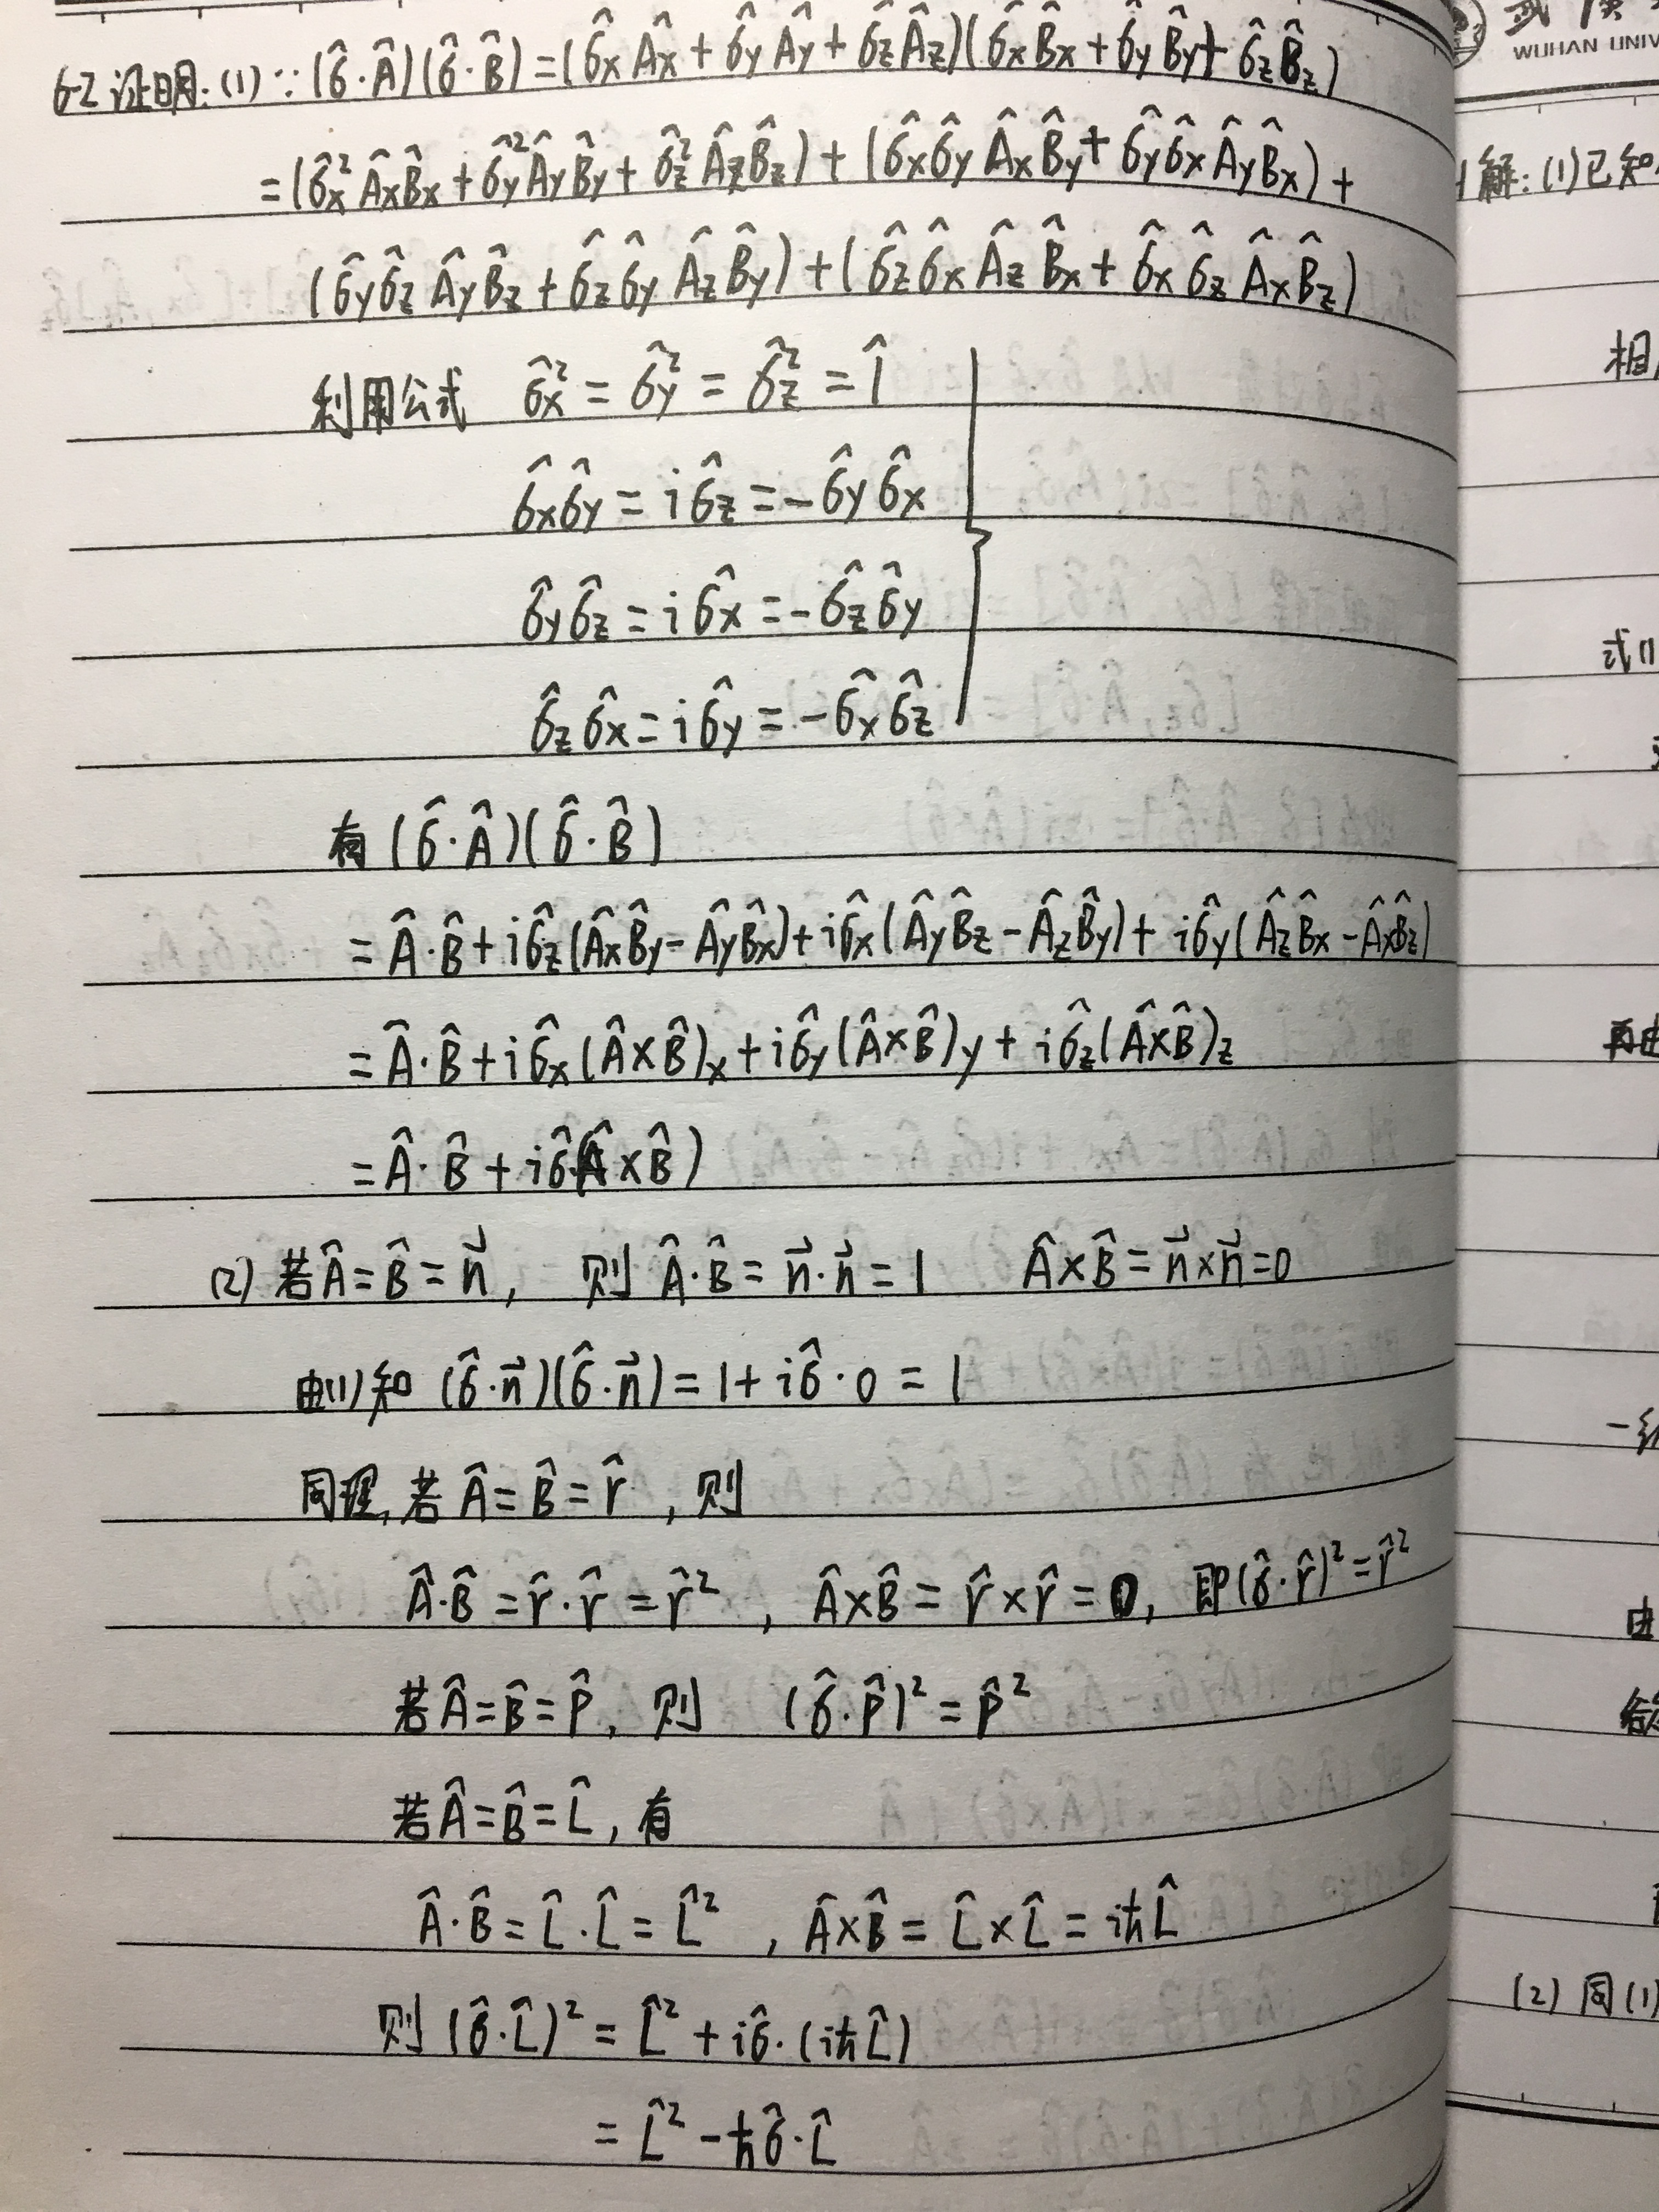 6-2 证明: (1) ∵ (σ̂·Â)(σ̂·B̂) = (σ̂xÂx + σ̂yÂy + σ̂zÂz)(σ̂xB̂x + σ̂yB̂y + σ̂zB̂z)
= (σ̂x²ÂxB̂x + σ̂y²ÂyB̂y + σ̂z²ÂzB̂z) + (σ̂xσ̂yÂxB̂y + σ̂yσ̂xÂyB̂x) +
(σ̂yσ̂zÂyB̂z + σ̂zσ̂yÂzB̂y) + (σ̂zσ̂xÂzB̂x + σ̂xσ̂zÂxB̂z)
利用公式 σ̂x² = σ̂y² = σ̂z² = 1̂
σ̂xσ̂y = iσ̂z = -σ̂yσ̂x
σ̂yσ̂z = iσ̂x = -σ̂zσ̂y
σ̂zσ̂x = iσ̂y = -σ̂xσ̂z
有 (σ̂·Â)(σ̂·B̂)
= Â·B̂ + iσ̂z(ÂxB̂y - ÂyB̂x) + iσ̂x(ÂyB̂z - ÂzB̂y) + iσ̂y(ÂzB̂x - ÂxB̂z)
= Â·B̂ + iσ̂x(Â×B̂)x + iσ̂y(Â×B̂)y + iσ̂z(Â×B̂)z
= Â·B̂ + iσ̂·(Â×B̂)
(2) 若Â = B̂ = n⃗, 则 Â·B̂ = n⃗·n⃗ = 1 Â×B̂ = n⃗×n⃗ = 0
由(1)知 (σ̂·n⃗)(σ̂·n⃗) = 1 + iσ̂·0 = 1
同理, 若 Â = B̂ = r̂, 则
Â·B̂ = r̂·r̂ = r̂², Â×B̂ = r̂×r̂ = 0, 即(σ̂·r̂)² = r̂²
若Â = B̂ = p̂, 则 (σ̂·p̂)² = p̂²
若Â = B̂ = L̂, 有
Â·B̂ = L̂·L̂ = L̂², Â×B̂ = L̂×L̂ = iħL̂
则 (σ̂·L̂)² = L̂² + iσ̂·(iħL̂)
= L̂² - ħσ̂·L̂
WUHAN UNIV
解: (1)已知
相
式
再由
一
由
(2) 同(1)